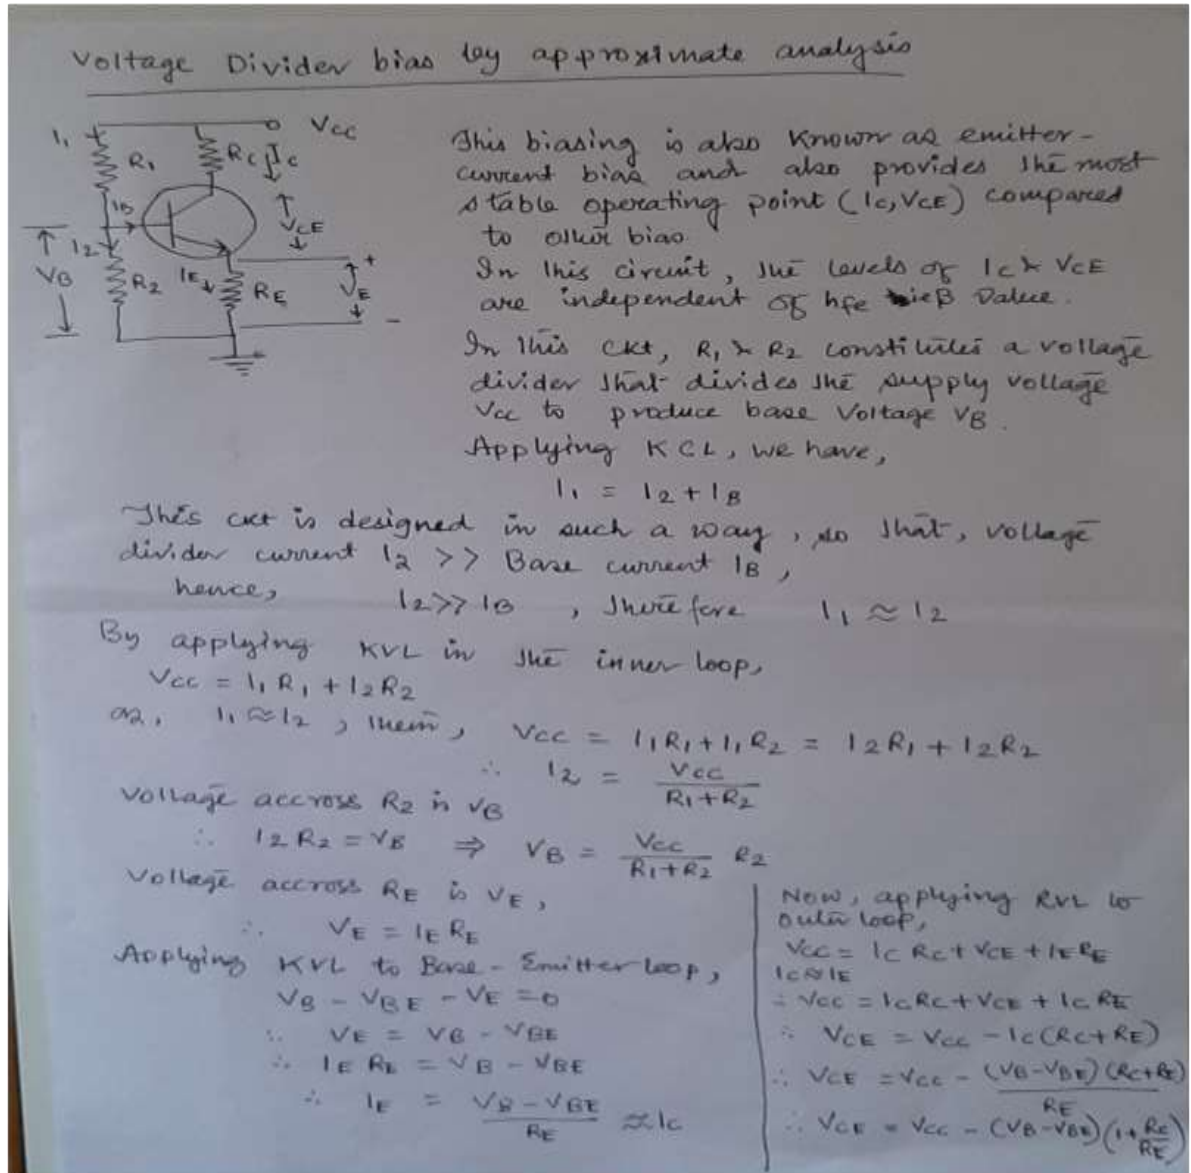 Voltage Divider bias by approximate analysis
I1
R1
RC
IC
VCC
IB
I2
VB
R2
IE
RE
VCE
VE
+
-
This biasing is also known as emitter-
current bias and also provides the most
stable operating point (IC, VCE) compared
to other bias.
In this circuit, the levels of IC & VCE
are independent of hfe ie β value.
In this ckt, R1 & R2 constitutes a voltage
divider that divides the supply voltage
Vcc to produce base voltage VB.
Applying KCL, we have,
I1 = I2 + IB
This ckt is designed in such a way, so that, voltage
divider current I2 >> Base current IB,
hence, I2 >> IB, therefore I1 ≈ I2
By applying KVL in the inner loop,
Vcc = I1 R1 + I2 R2
as, I1 ≈ I2, then, Vcc = I1 R1 + I1 R2 = I2 R1 + I2 R2
∴ I2 = Vcc / (R1 + R2)
Voltage accross R2 is VB
∴ I2 R2 = VB ⇒ VB = Vcc / (R1 + R2) R2
Voltage accross RE is VE,
∴ VE = IE RE
Applying KVL to Base-Emitter loop,
VB - VBE - VE = 0
∴ VE = VB - VBE
∴ IE RE = VB - VBE
∴ IE = (VB - VBE) / RE ≈ IC
Now, applying KVL to
outer loop,
Vcc = IC RC + VCE + IE RE
IC ≈ IE
∴ Vcc = IC RC + VCE + IC RE
∴ VCE = Vcc - IC (RC + RE)
∴ VCE = Vcc - (VB - VBE) (RC + RE) / RE
∴ VCE = Vcc - (VB - VBE) (1 + RC / RE)